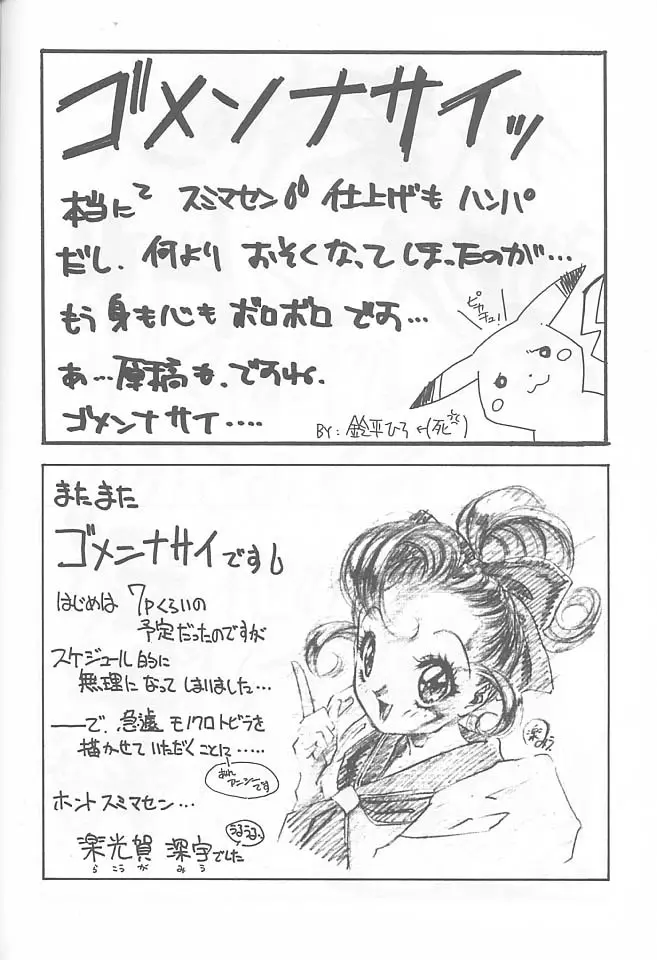 ゴメンナサイッ
本当にて スミマセン 仕上げも ハンパ
だし、何より おそくなってしまったのが…
もう 身も心も ボロボロ です…
あ…原稿も、ですね、
ゴメンナサイ….
ピカチュ!
BY: 鈴平ひろ ←(死)
またまた
ゴメンナサイです
はじめは 7Pくらいの
予定だったのですが
スケジュール的に
無理になってしまいました…
――で、急遽 モノクロトビラを
描かせていただくことに……
ホント スミマセン…
うるうる
楽光賀 深宇でした
らこうが みう